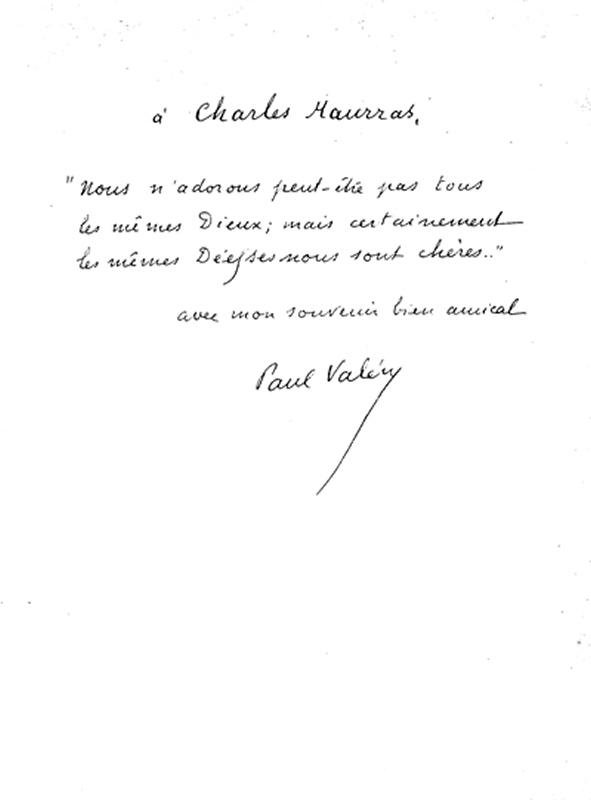 à Charles Maurras,
"Nous n'adorons peut-être pas tous
les mêmes Dieux; mais certainement
les mêmes Déesses nous sont chères.."
avec mon souvenir bien amical
Paul Valéry